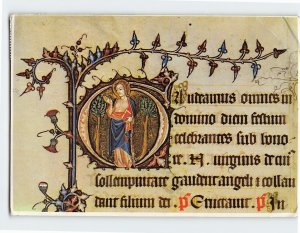 Gaudeamus omnes in
domino diem festum
celebrantes sub hono
re. N. virginis de cui'
sollempnitate gaudent angeli et collau
dant filium dei. ps Eructauit. ps In